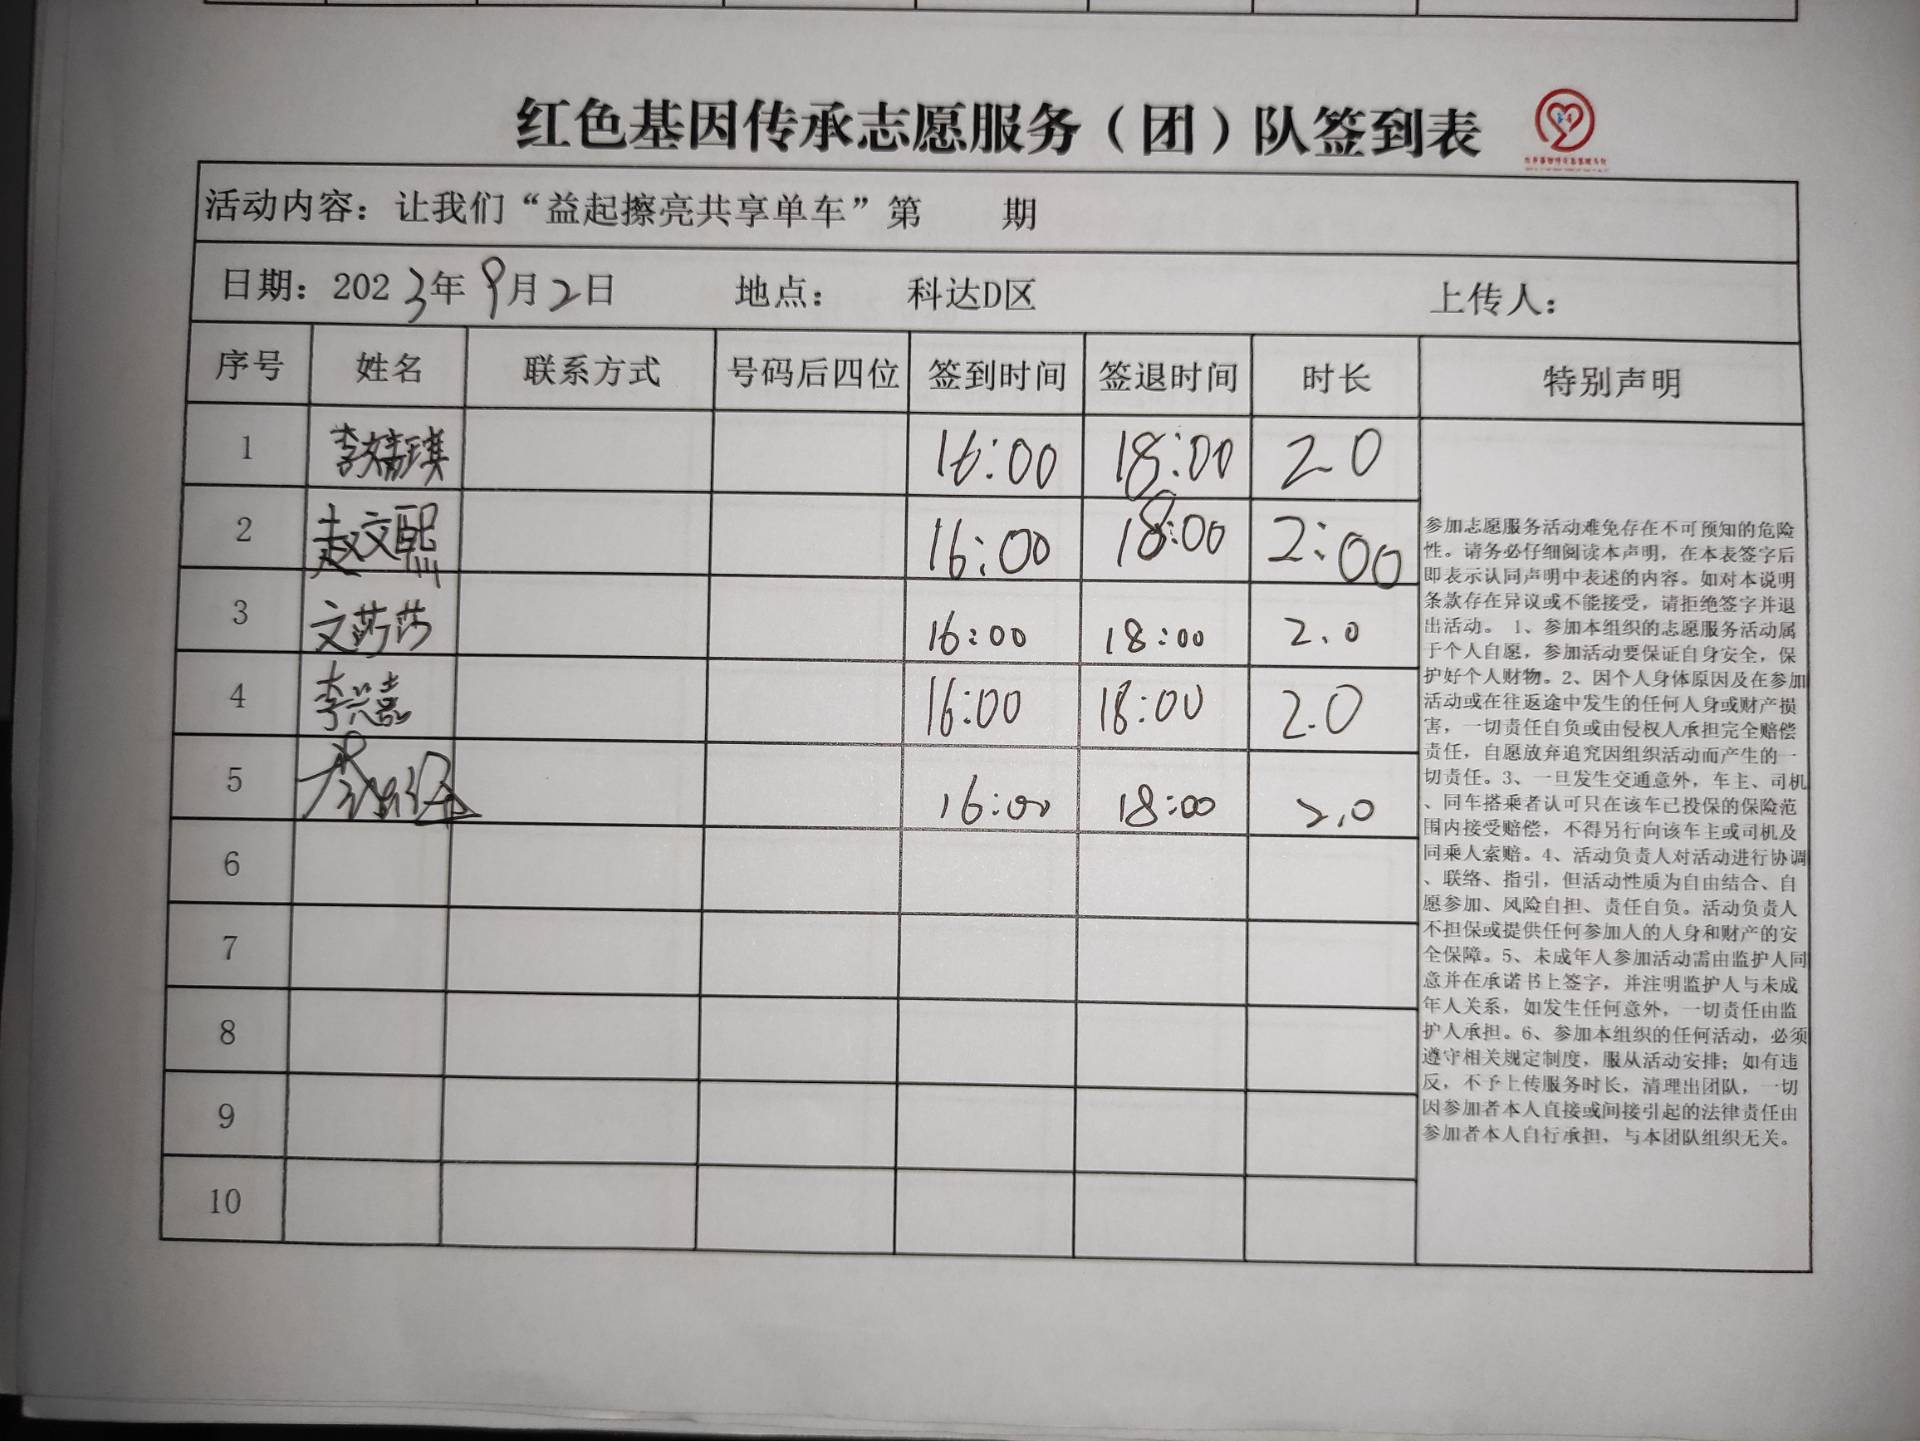 红色基因传承志愿服务（团）队签到表
活动内容：让我们“益起擦亮共享单车”第 期
日期：2023年9月2日 地点： 科达D区 上传人：
序号 姓名 联系方式 号码后四位 签到时间 签退时间 时长 特别声明
1 李婧琪 16:00 18:00 2.0
2 赵文熙 16:00 18:00 2:00
3 文莎莎 16:00 18:00 2.0
4 李兴嘉 16:00 18:00 2.0
5 16:00 18:00 2.0
6
7
8
9
10
参加志愿服务活动难免存在不可预知的危险
性。请务必仔细阅读本声明，在本表签字后
即表示认同声明中表述的内容。如对本说明
条款存在异议或不能接受，请拒绝签字并退
出活动。 1、参加本组织的志愿服务活动属
于个人自愿，参加活动要保证自身安全，保
护好个人财物。2、因个人身体原因及在参加
活动或在往返途中发生的任何人身或财产损
害，一切责任自负或由侵权人承担完全赔偿
责任，自愿放弃追究因组织活动而产生的一
切责任。3、一旦发生交通意外，车主、司机
、同车搭乘者认可只在该车已投保的保险范
围内接受赔偿，不得另行向该车主或司机及
同乘人索赔。4、活动负责人对活动进行协调
、联络、指引，但活动性质为自由结合、自
愿参加、风险自担、责任自负。活动负责人
不担保或提供任何参加人的人身和财产的安
全保障。5、未成年人参加活动需由监护人同
意并在承诺书上签字，并注明监护人与未成
年人关系，如发生任何意外，一切责任由监
护人承担。6、参加本组织的任何活动，必须
遵守相关规定制度，服从活动安排；如有违
反，不予上传服务时长，清理出团队，一切
因参加者本人直接或间接引起的法律责任由
参加者本人自行承担，与本团队组织无关。